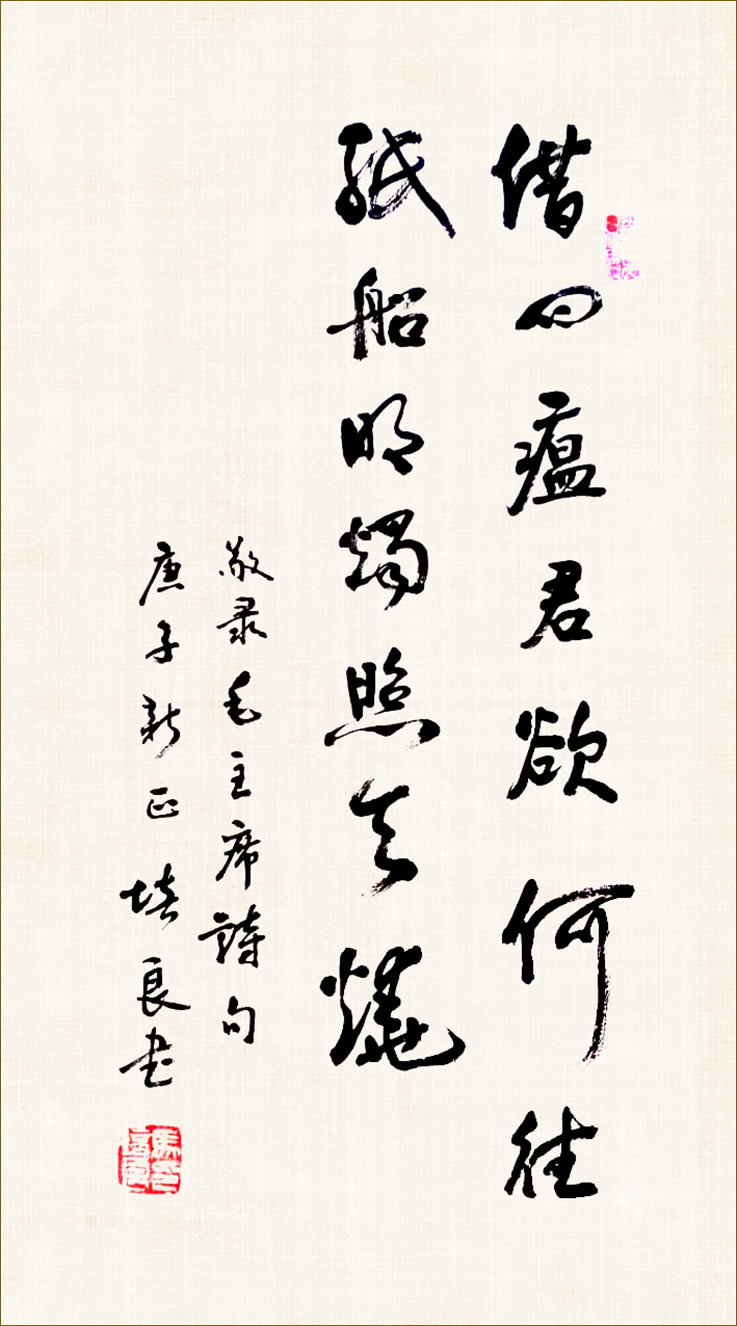 借问瘟君欲何往
纸船明烛照天烧
敬录毛主席詩句
庚子新正培良书